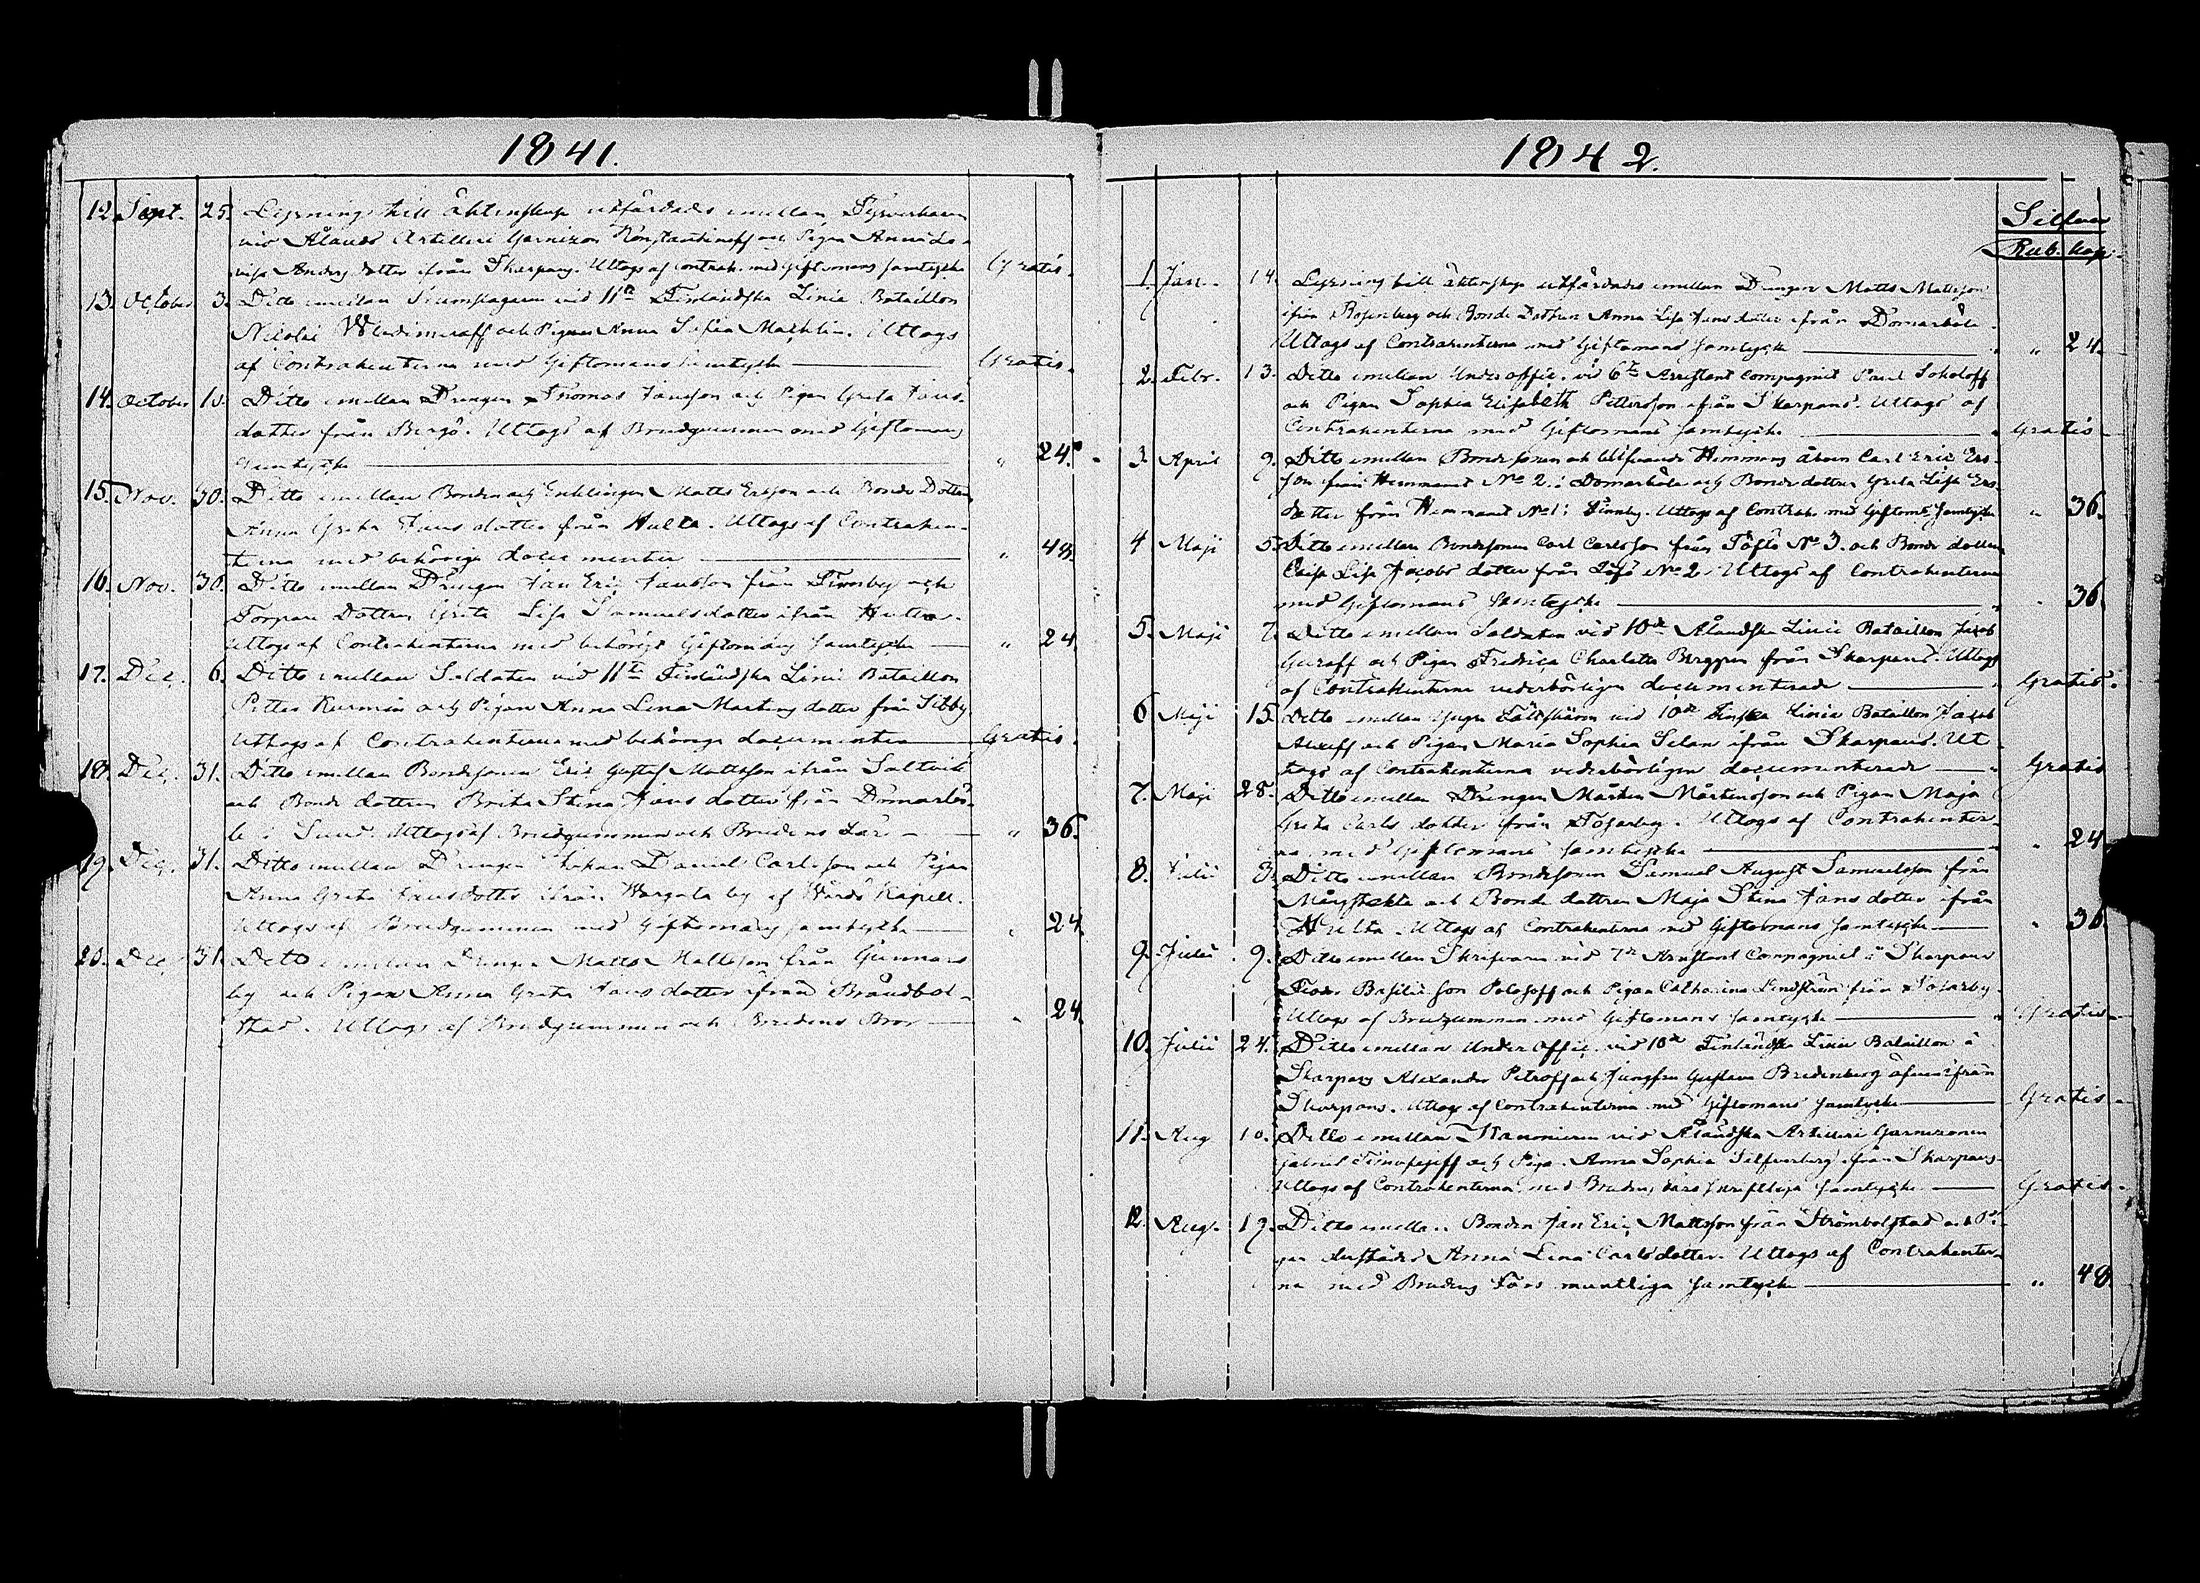 1841.
12. Sept. 25. Lysning till äktenskap utfärdades emellan Fyrverkaren
vid Ålands Artilleri Garnizon Konstantinoff och Pigan Anna Lo-
visa Anders dotter ifrån Skarpans. Uttogs af Contrah. med Giftomans samtycke Gratis.
13. October 3. Ditto emellan vid 11te Finländska Linie Bataillon
Nicolai Wladimiroff och Pigan Anna Sofia Machlin. Uttogs
af Contrahenterna med Giftomans samtycke Gratis.
14. October 10. Ditto emellan Drengen Thomas Jansson och Pigan Greta Jans-
dotter från Bergö. Uttogs af Brudgummen med Giftomans
samtycke " 24.
15. Nov. 30. Ditto emellan Bonden och Enklingen Matts Ersson och Bonde Dottren
Anna Greta Jans dotter från Hulta. Uttogs af Contrahen-
terna med behöriga documenter " 48.
16. Nov. 30. Ditto emellan Drengen Jan Eric Jansson från Finnby och
Torpare Dottren Greta Lisa Samuelsdotter ifrån Hulta.
Uttogs af Contrahenterna med behörigt Giftomans samtycke " 24
17. Dec. 6. Ditto emellan Soldaten vid 11te Finländska Linie Bataillon
Petter Kurmin och Pigan Anna Lena Martens dotter från Sibby.
Uttogs af Contrahenterna med behöriga documenter Gratis.
18. Dec. 31. Ditto emellan Bondesonen Eric Gustaf Mattsson ifrån Saltvik
och Bonde dottren Brita Stina Jans dotter från Domarbö-
le i Sund. Uttogs af Brudgummen och Brudens Far " 36.
19. Dec. 31. Ditto emellan Drengen Johan Daniel Carlsson och Pigan
Anna Greta Jansdotter ifrån Wargata by af Wårdö Kapell.
Uttogs af Brudgummen med Giftomans samtycke " 24
20. Dec. 31. Ditto emellan Drengen Matts Mattsson från Gunnars
by och Pigan Anna Greta Jans dotter ifrån Brändbol-
stad. Uttogs af Brudgummen och Brudens Bror " 24.
1842.
Silfver
Rub. kop.
1. Jan. 14. Lysning till äktenskap utfärdades emellan Drengen Matts Mattsson
ifrån Rosenberg och Bonde Dottren Anna Lisa Jans dotter ifrån Domarböle.
Uttogs af Contrahenterna med Giftomans samtycke " 24.
2. Febr. 13. Ditto emellan Under offic. vid 6te Arrestant Compagniet Pavel Sokoloff
och Pigan Sophia Elisabeth Pettersson ifrån Skarpans. Uttogs af
Contrahenterna med Giftomans samtycke Gratis
3. April 9. Ditto emellan Bondesonen och tillträdande Hemmans åboen Carl Eric Ers-
son från Hemmanet No 2. i Domarböle och Bonde dottren Greta Lisa Ers-
dotter från Hemmanet No 1 i Finnby. Uttogs af Contrah. med Giftoms samtycke " 36.
4 Maji 5. Ditto emellan Bondesonen Carl Carlsson från Töftö No 3. och Bonde dottren
Caisa Lisa Jacobs dotter från No 2. Uttogs af Contrahenterna
med Giftomans samtycke " 36.
5. Maji 7. Ditto emellan Soldaten vid 10de Åländska Linie Bataillon Jacob
Guraff och Pigan Fredrica Charlotta Berggren från Skarpans. Uttogs
af Contrahenterna vederbörligen documenterade Gratis.
6 Maji 15. Ditto emellan Fältskären vid 10de Finska Linie Bataillon Jacob
Alexeff och Pigan Maria Sophia Selan ifrån Skarpans. Ut
togs af Contrahenterna vederbörligen documenterade Gratis
7. Maji 28. Ditto emellan Drengen Mårten Mårtensson och Pigan Maja
Greta Carls dotter från Tosarby. Uttogs af Contrahenter-
na med Giftomans samtycke " 24.
8. Julii 3. Ditto emellan Bondesonen Samuel August Samuelsson från
Mångstekta och Bonde dottren Maja Stina Jans dotter ifrån
Hulta. Uttogs af Contrahenterna med Giftomans samtycke " 36.
9. Julii 9. Ditto emellan Skrifvaren vid 7de Arrestant Compagniet å Skarpans
Feodor Basilii son Polosoff och Pigan Catharina Lindström från Tosarby.
Uttogs af Brudgummen med Giftomans samtycke Gratis
10. Julii 24. Ditto emellan Under Offic. vid 10de Finländska Linie Bataillon å
Skarpans Alexander Petroff och Jungfru Gustava Bredenberg äfven ifrån
Skarpans. Uttogs af Contrahenterna med Giftomans samtycke Gratis
11. Aug 10. Ditto emellan Kanonieren vid Åländska Artilleri Garnizonen
Gabriel Timofejeff och Piga. Anna Sophia Silfverberg ifrån Skarpans.
Uttogs af Contrahenterna med Brudens Fars skriftliga samtycke Gratis.
12. Aug. 19. Ditto emellan Bonden Jan Eric Mattsson från Strömbolstad och Pi-
gan Anna Lena Carls dotter. Uttogs af Contrahenter-
na med Brudens Fars muntliga samtycke " 48.